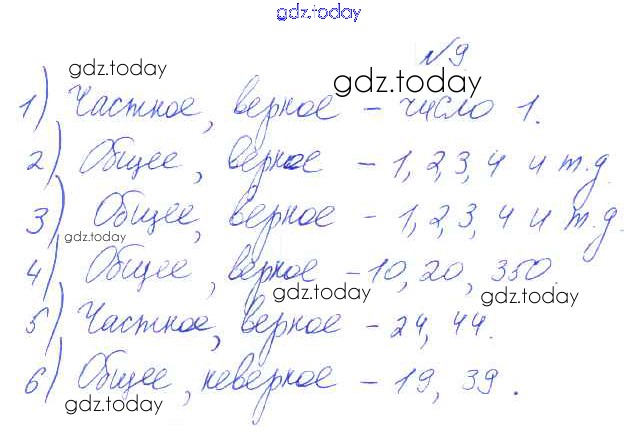 gdz.today
№9
gdz.today
1) Частное, верное – число 1.
gdz.today
2) Общее, верное – 1, 2, 3, 4 и т.д.
3) Общее, верное – 1, 2, 3, 4 и т.д.
gdz.today
4) Общее, верное – 10, 20, 350.
gdz.today
gdz.today
5) Частное, верное – 24, 44.
6) Общее, неверное – 19, 39.
gdz.today